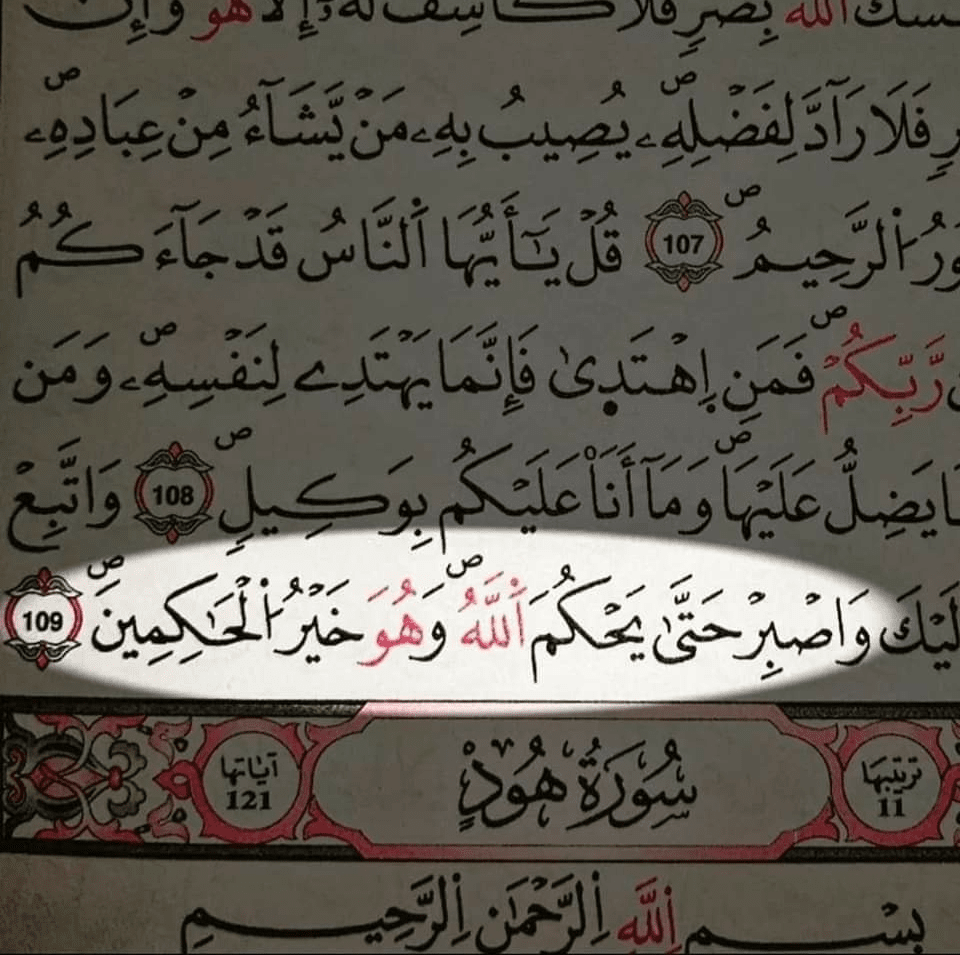 الله بِضُرٍّ فَلَا كَاشِفَ لَهُ إِلَّا هُوَ وَإِنْ
فَلَا رَآدَّ لِفَضْلِهِۦ يُصِيبُ بِهِۦ مَنْ يَّشَآءُ مِنْ عِبَادِهِۦ
اُ۬لرَّحِيمُ 107 قُلْ يَٰٓأَيُّهَا اَ۬لنَّاسُ قَدْ جَآءَكُمُ
رَّبِّكُمْ فَمَنِ اِ۪هْتَد۪يٰ فَإِنَّمَا يَهْتَدِے لِنَفْسِهِۦ وَمَن
يَضِلُّ عَلَيْهَا وَمَآ أَنَا۠ عَلَيْكُم بِوَكِيلٍ 108 وَاتَّبِعْ
وَاصْبِرْ حَتَّىٰ يَحْكُمَ اَ۬للَّهُ وَهُوَ خَيْرُ اُ۬لْحَٰكِمِينَ 109
ترتيبها 11 سُورَةُ هُودٍ آياتها 121
بِسْمِ اِ۬للَّهِ اِ۬لرَّحْمَٰنِ اِ۬لرَّحِيمِ